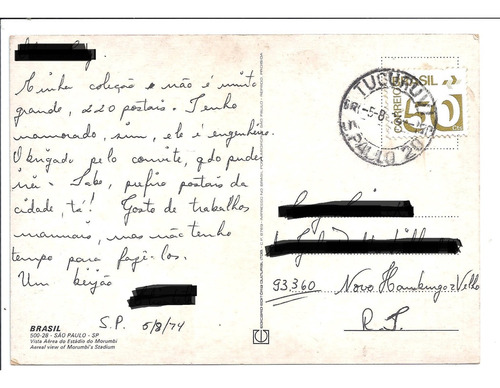 Minha coleção não é muito
grande, 220 postais. Tenho
namorado, sim, ele é engenheiro.
Obrigada pelo convite, qdo puder
irei. Sabe, prefiro postais da
cidade, tá! Gosto de trabalhos
manuais, mas não tenho
tempo para fazê-los.
Um beijão
S.P. 5/8/74
BRASIL
500-28 - SÃO PAULO - SP
Vista Aérea do Estádio do Morumbi
Aereal view of Morumbi's Stadium
TUCURUVI
S.PAULO
BRASIL
CORREIO
50
93.360 Novo Hamburgo-Velho